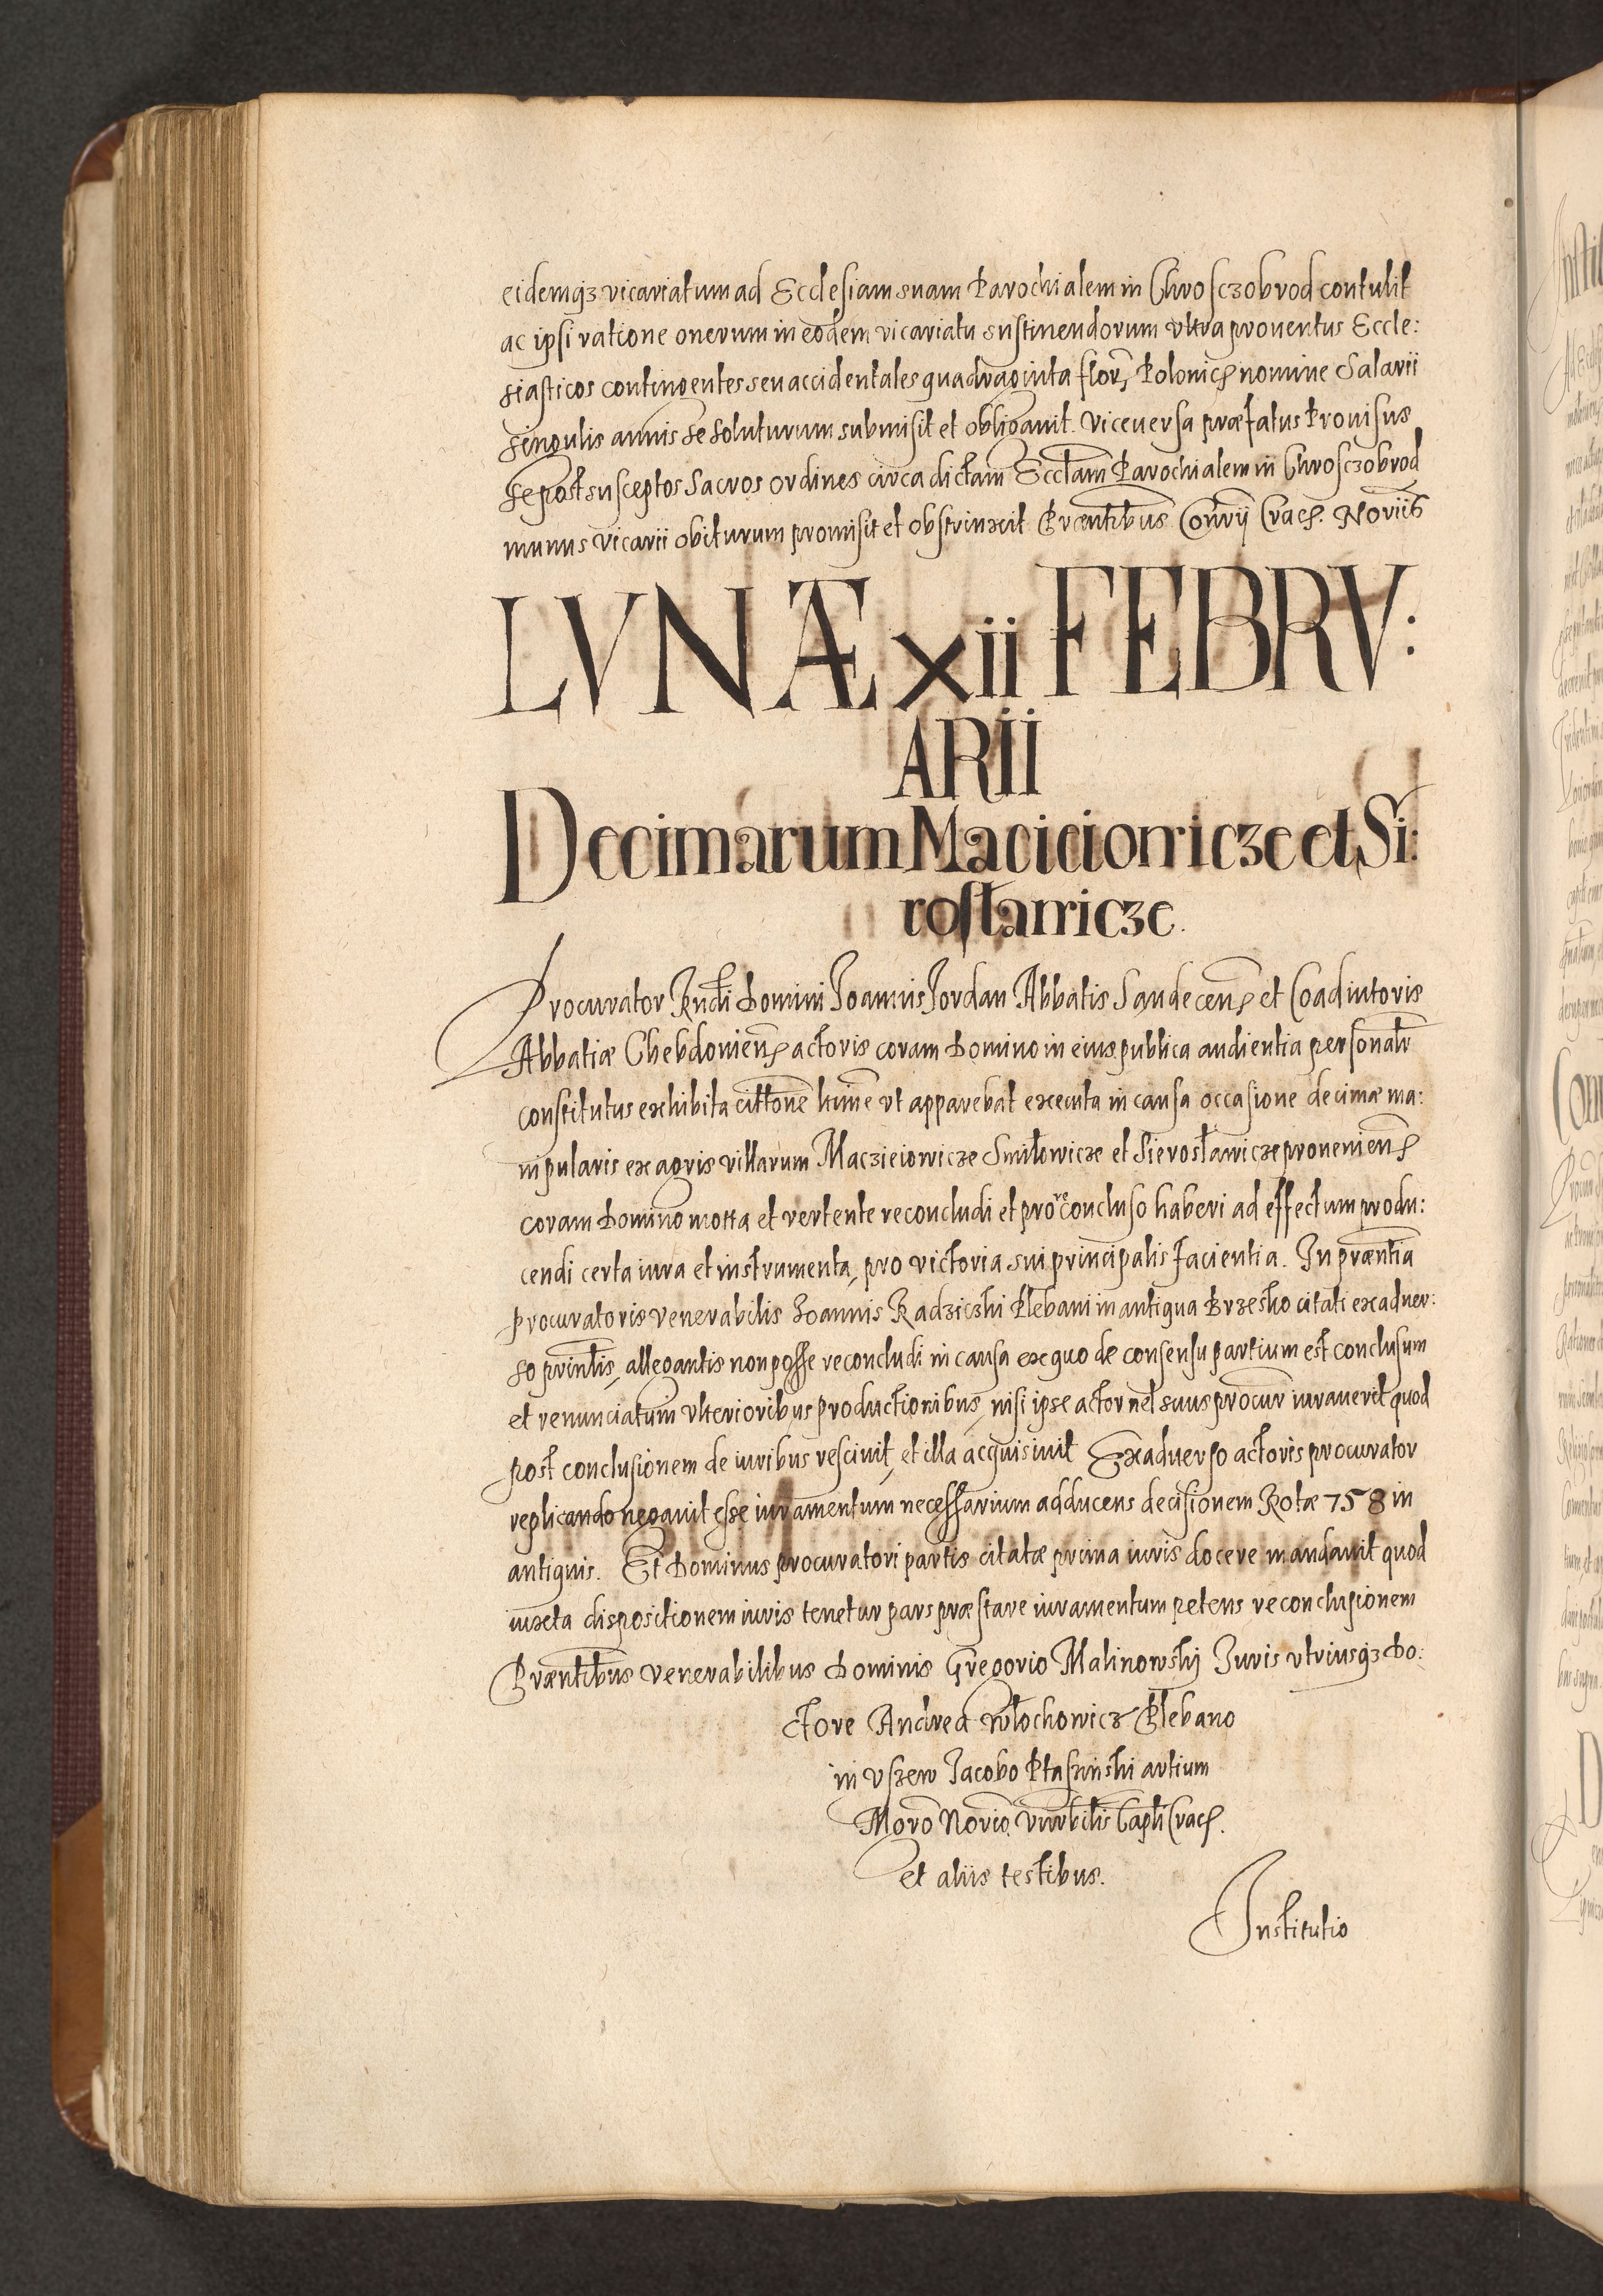 eidemqꝫ vicariatum ad Ecclesiam suam Parochialem in Chrosczobrod contulit
ac ipsi ratione onerum in eodem vicariatu sustinendorum vltra prouentus Eccle:
siasticos contingentes seu accidentales quadraginta flor, Polonicę nomine Salarii
singulis annis se soluturum submisit et obligauit. Viceuersa præfatus Prouisus
se post susceptos Sacros ordines circa dictam Ecctam Parochialem in Chrosczobrod
munus vicarii obiturum promisit et obstrinxit Præntibus Conrÿ Crac. Noriis
LVNÆ xii FEBRV:
ARII
Decimarum Macieiowicze et Si:
rostawicze.
Procurator Rndi Domini Joannis Jordan Abbatis Sandecen et Coadiutoris
Abbatiæ Chebdouien actoris coram Domino in eius publica audientia personalr
constitutus exhibita cittone hmne vt apparebat executa in causa occasione decimæ ma:
nipularis ex agris villarum Maczieiowicze Smitowicze et Sierostawicze prouenien
coram Domino mota et vertente reconcludi et pro re concluso haberi ad effectum produ:
cendi certa iura et instrumenta, pro victoria sui principalis facientia. In præntia
procuratoris venerabilis Joannis Radziczki Plebani in antiqua Brzesko citati ex aduer:
so printis, allegantis non posse reconcludi in causa ex quo de consensu partium est conclusum
et renunciatum vlterioribus productionibus, nisi ipse actor uel suus procur iurauerit quod
post conclusionem de iuribus resciuit, et illa acquisiuit Ex aduerso actoris procurator
replicando negauit esse iuramentum necessarium adducens decisionem Rotæ 758 in
antiquis. Et Dominus procuratori partis citatæ prima iuris docere mandauit quod
iuxta dispositionem iuris tenetur pars præstare iuramentum petens reconclusionem
Præntibus Venerabilibus Dominis Gregorio Malinowskj Juris vtriusqꝫ Do:
ctore Andrea Włochowicz Plebano
in Vszew Jacobo Ptaszinski artium
Mgro Norio Vnrbilis Capli Crac.
et aliis testibus.
Institutio